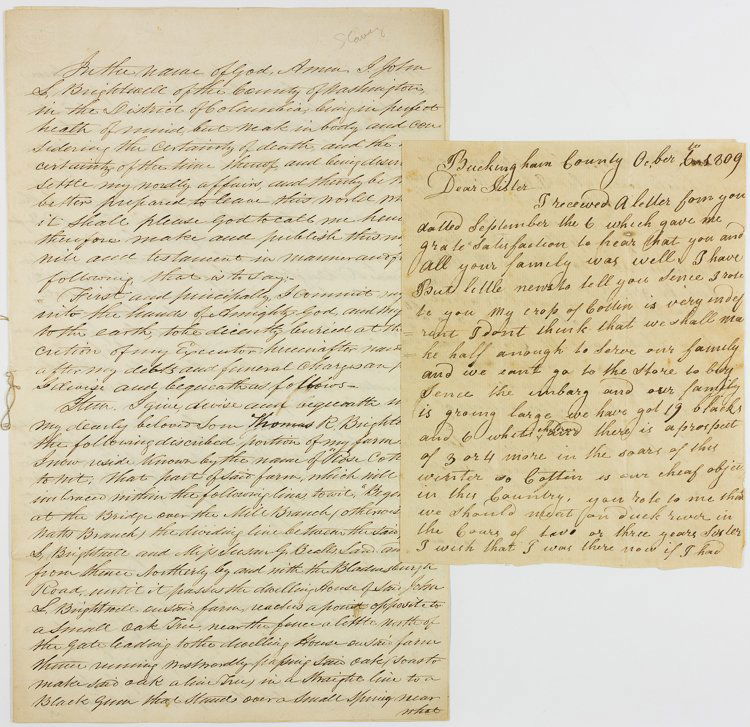 Slavery
In the Name of God, Amen. I John
L. Brightwell of the County of Washington
in the District of Columbia, being in perfect
health of mind, but weak in body, and con
sidering the certainty of death, and the
certainty of the time thereof and being
settle my wordly affairs, and thereby be
better prepared to leave this world
it shall please God to call me
therefore make and publish this my
will and testament in manner and
following that is to say:-
First, and principally, I commit my
into the hands of Almighty God, and my
to the earth, to be decently buried at the
cretion of my Executor hereinafter
after my debts and funeral Charges are
I devise and bequeath as follows-
Item. I give, devise and bequeath
my dearly beloved Son Thomas R.
the following described portion of my farm
I now reside known by the name of
to wit, that part of said farm, which
embraced within the following lines to wit,
at the Bridge over the Mill Branch,
Branch, the dividing line between the said
L. Brightwell and Susan G. Beall's Land
from thence Northerly by and with the Bladensburgh
Road, until it passes the dwelling House of said John
L. Brightwell on said farm, reaches a point opposite to
a Small Oak Tree, near the fence a little north of
the Gate leading to the dwelling House on said farm
thence running westwardly passing said Oak, so as to
make said oak a line Tree, in a straight line to a
Black Gum that stands over a small Spring near
what
Buckingham County Ocber 1809
Dear Sister
I received A letter form you
datted September the 6 which gave me
grate Satisfaction to hear that you and
All your family was well I have
But little news to tell you Sence I rote
to you My crop of Cottin is very indef
rent I dont think that we shall ma
ke half anough to Serve our family
and we cant go to the store to buy
Sence the imbarg and our family
is groing large we have got 19 blacks
and 6 white and there is a prospect
of 3 or 4 more in the soars of this
winter so Cottin is our cheaf objec
in this Country, you rote to me that
we should meat on duck river in
the Cours of two or three years Sister
I wish that I was there now if I had